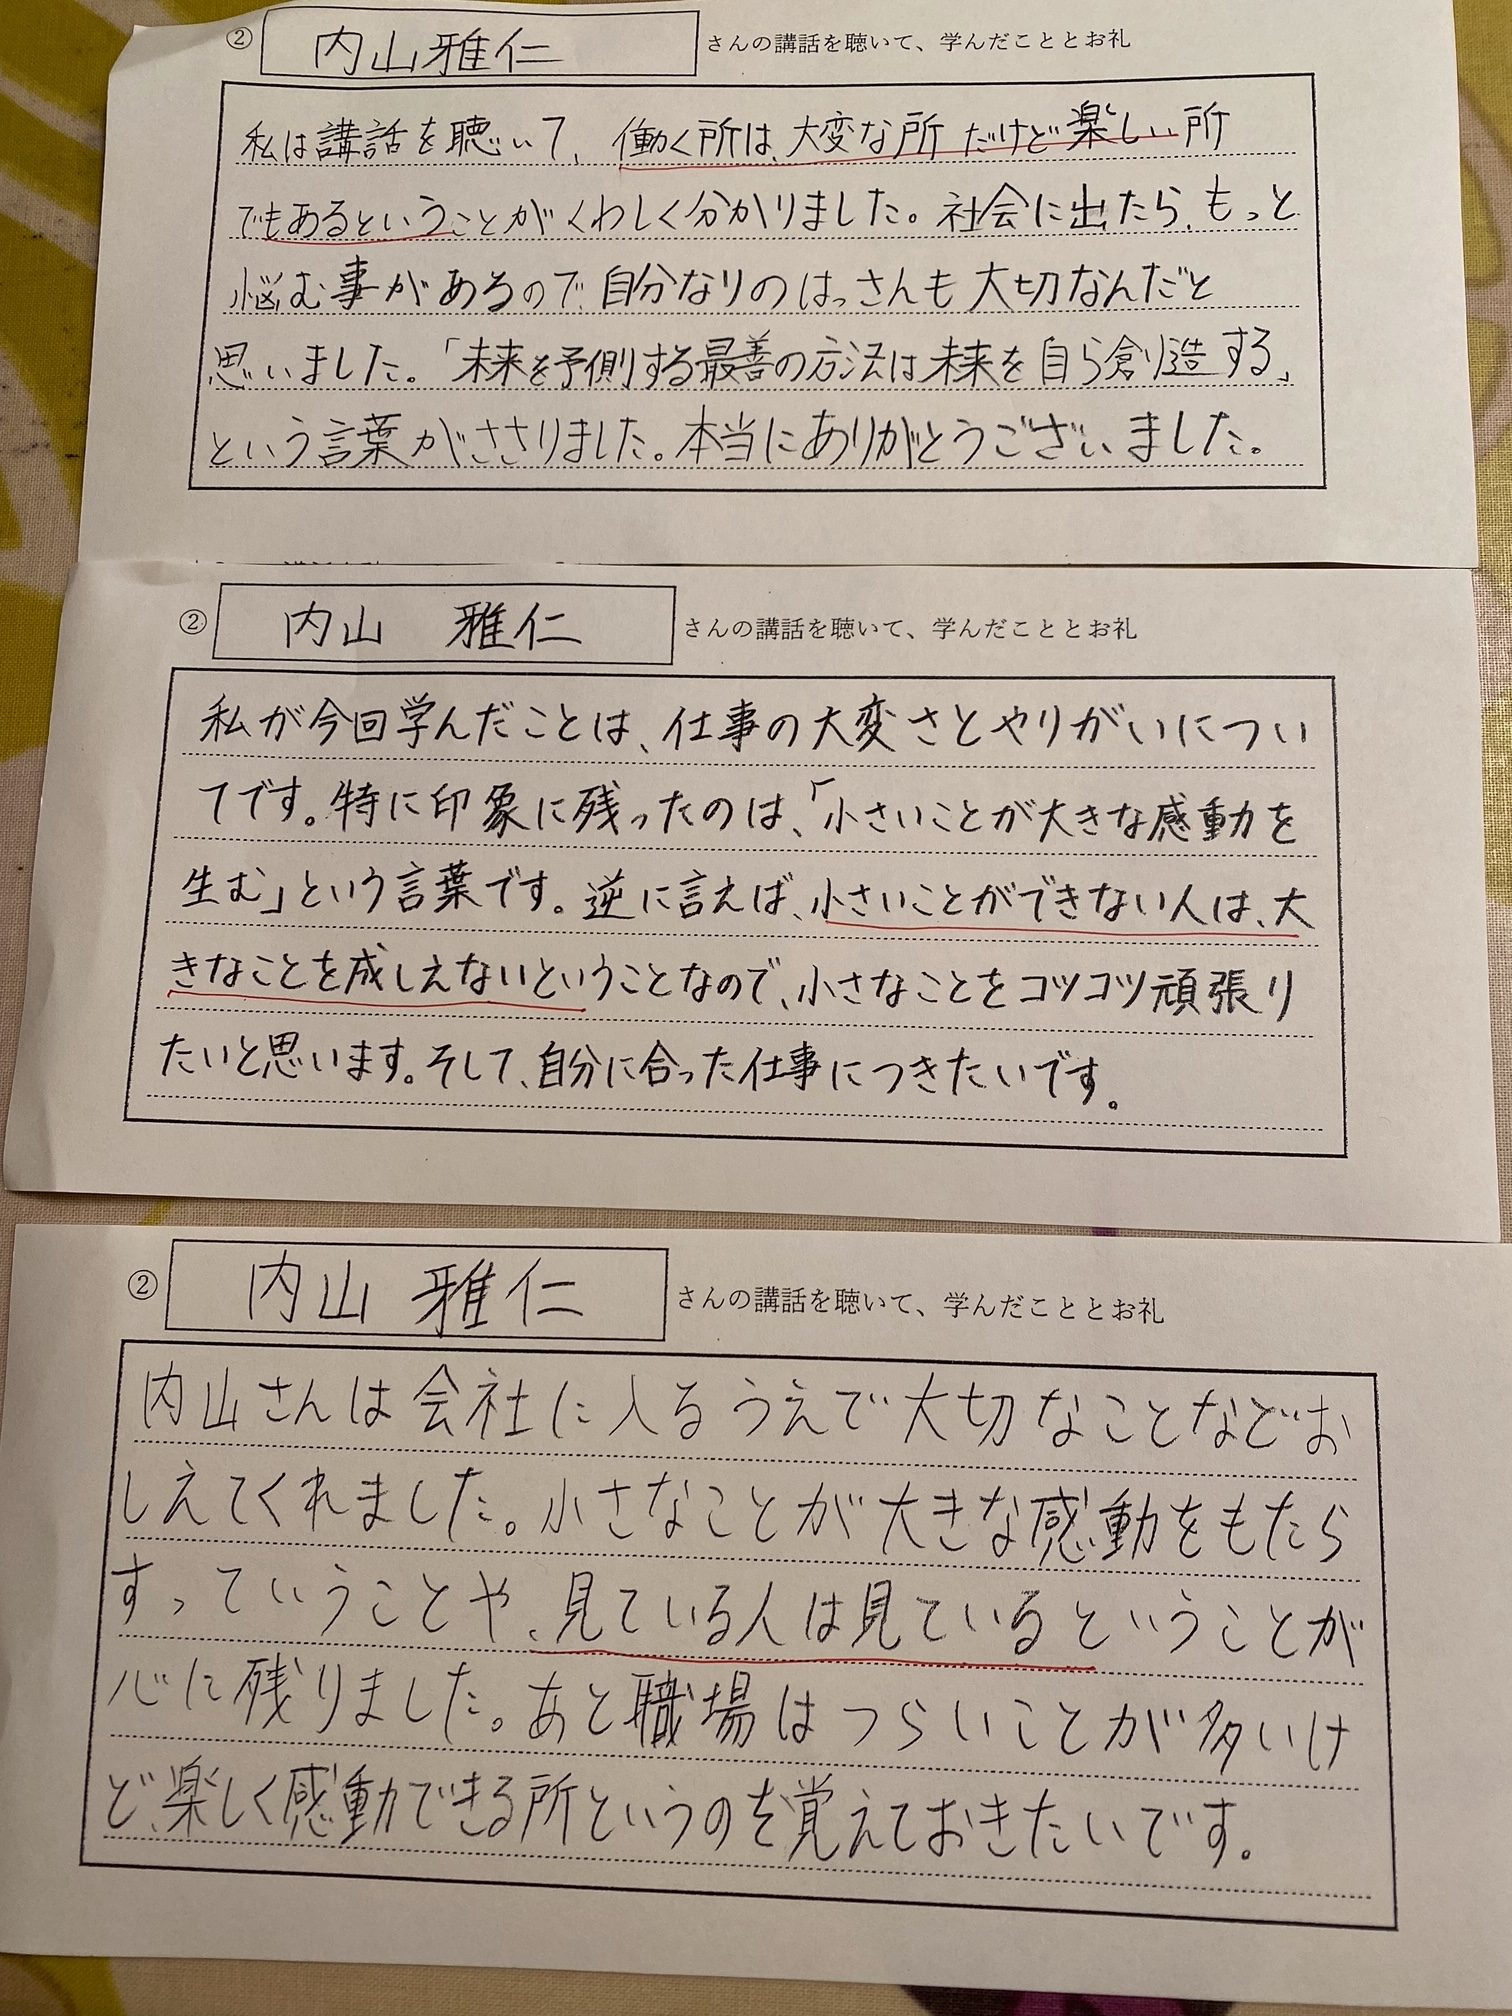 ② 内山雅仁 さんの講話を聴いて、学んだこととお礼
私は講話を聴いて、働く所は、大変な所だけど楽しい所
でもあるということがくわしく分かりました。社会に出たら、もっと
悩む事があるので、自分なりのはっさんも大切なんだと
思いました。「未来を予側する最善の方法は未来を自ら創造する」
という言葉がささりました。本当にありがとうございました。
② 内山 雅仁 さんの講話を聴いて、学んだこととお礼
私が今回学んだことは、仕事の大変さとやりがいについ
てです。特に印象に残ったのは、「小さいことが大きな感動を
生む」という言葉です。逆に言えば、小さいことができない人は、大
きなことを成しえないということなので、小さなことをコツコツ頑張り
たいと思います。そして、自分に合った仕事につきたいです。
② 内山 雅仁 さんの講話を聴いて、学んだこととお礼
内山さんは会社に入るうえで大切なことなどお
しえてくれました。小さなことが大きな感動をもたら
すっていうことや、見ている人は見ているということが
心に残りました。あと職場はつらいことが多いけ
ど、楽しく感動できる所というのを覚えておきたいです。